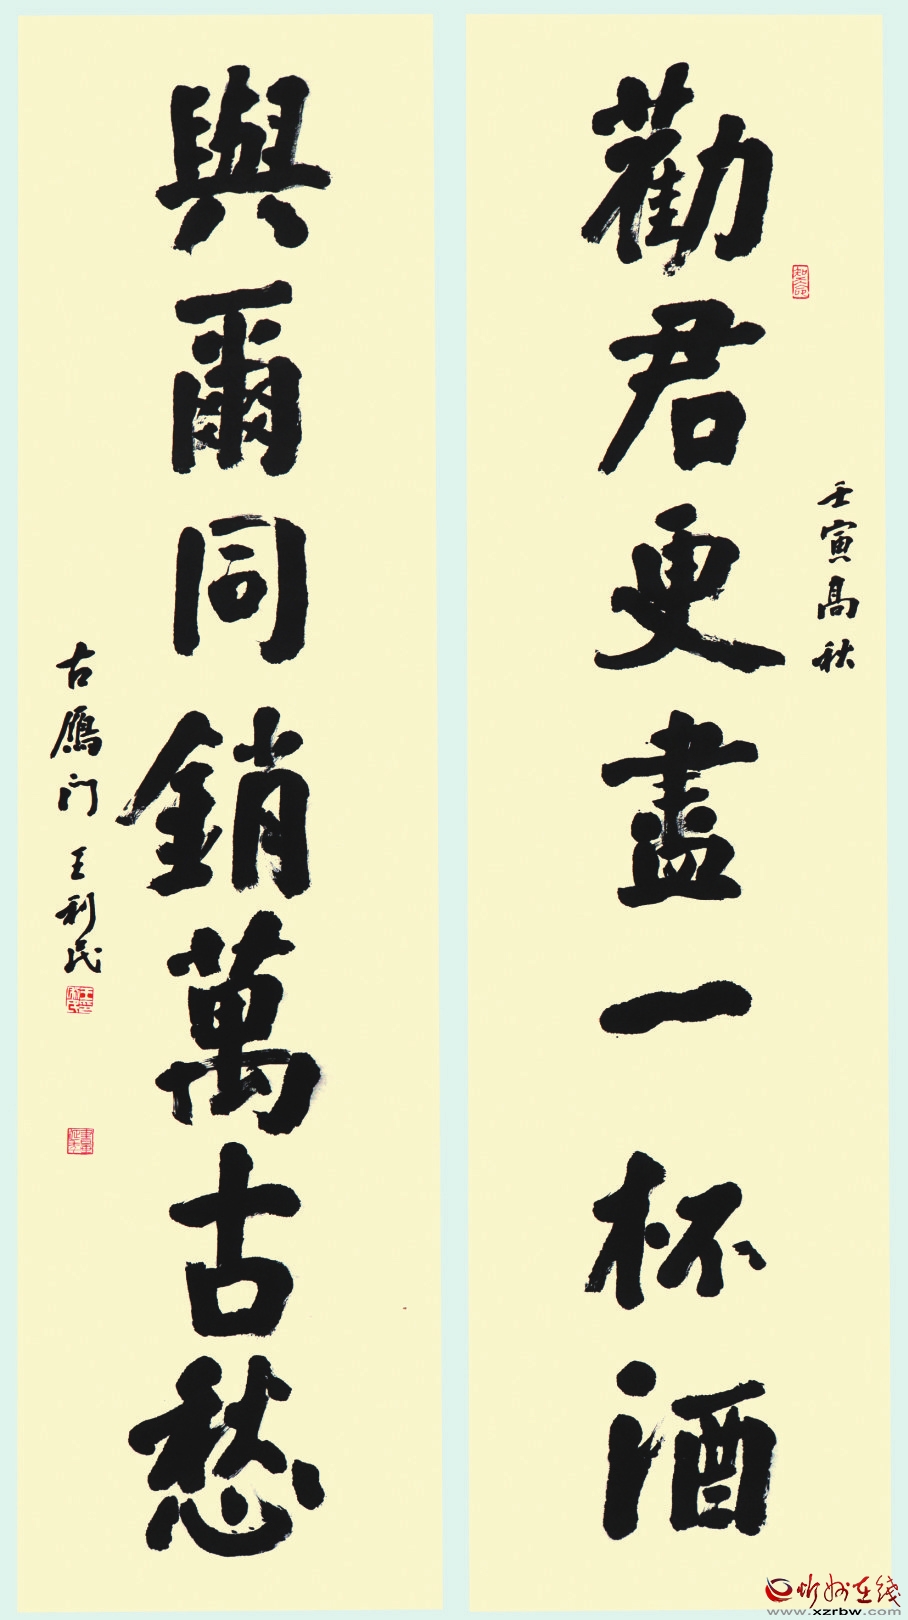 勸君更盡一杯酒
壬寅高秋
與爾同銷萬古愁
古鴈门 王利民
忻州在线
www.xzrbw.com